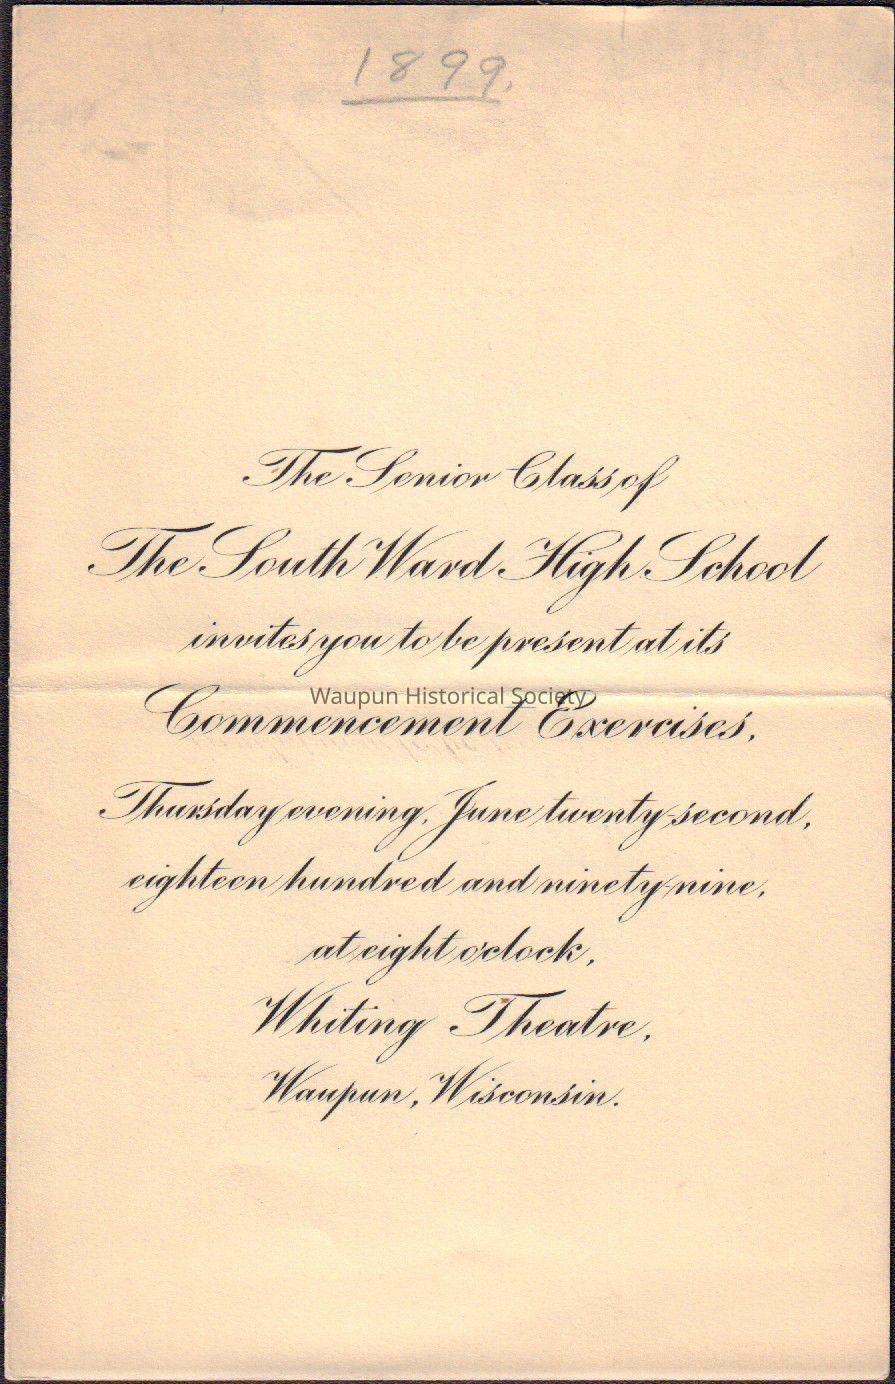 1899.
The Senior Class of
The South Ward High School
invites you to be present at its
Waupun Historical Society
Commencement Exercises,
Thursday evening, June twenty-second,
eighteen hundred and ninety-nine,
at eight o'clock,
Whiting Theatre,
Waupun, Wisconsin.